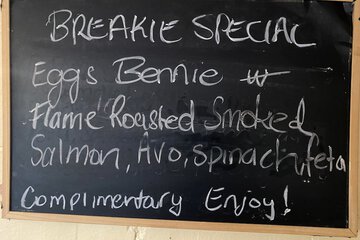 BREAKIE SPECIAL
Eggs Bennie w
Flame Roasted Smoked
Salmon, Avo, spinach, feta
Complimentary Enjoy!